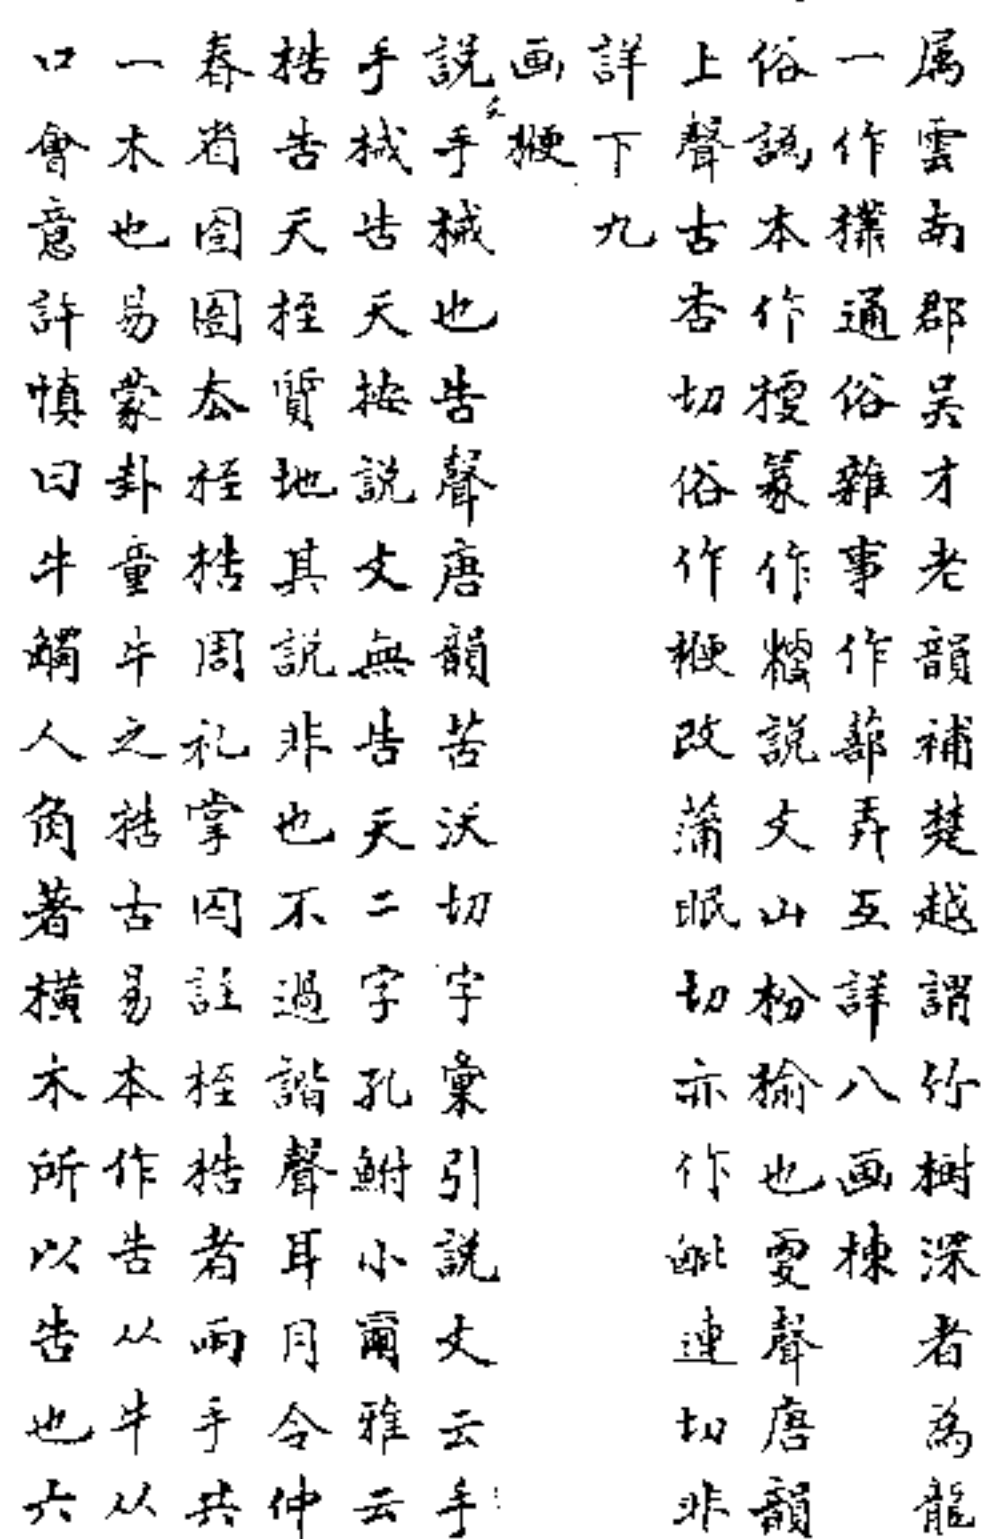 属雲南郡吴才老韻補楚越謂竹樹深者為龍
一作檏通俗雜事作蔀弄互詳八画棟
俗譌本作挭篆作㯅說文山枌榆也㪅聲唐韻
上聲古杏切俗作梗改蒲眠切亦作毗連切非
詳下九
画梗
說文手械也告聲唐韻苦沃切字彙引說文云手
手械告天按說文無告天二字孔鮒小爾雅云
梏告天桎質地其説非也不過諧聲耳月令仲
春省囹圄厺桎梏周礼掌囚註桎梏者兩手共
一木也易蒙卦童牛之梏古易本作告从牛从
口會意許慎曰牛觸人角著橫木所以告也六